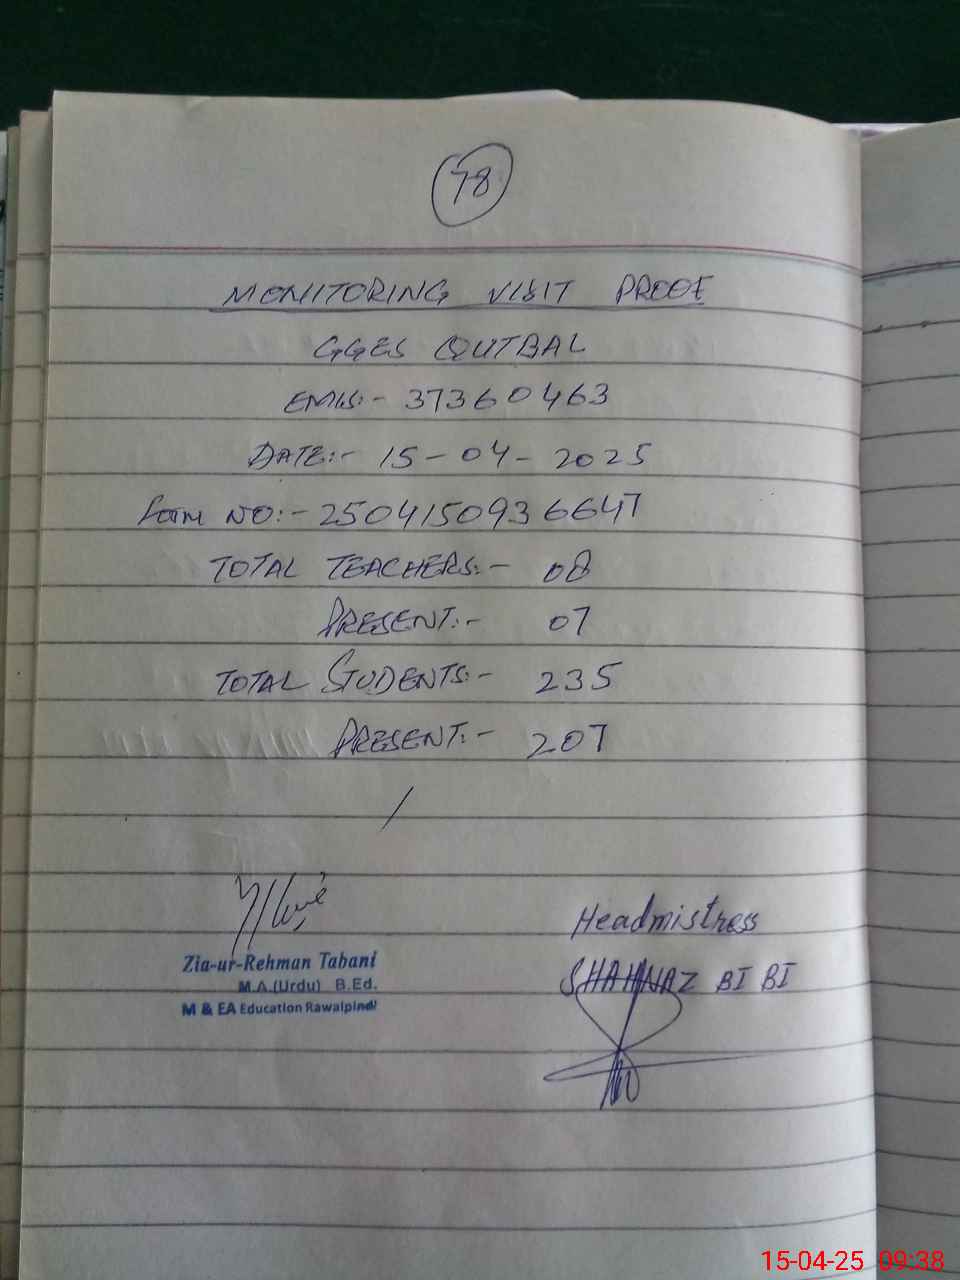 78
MONITORING VISIT PROOF
GGES QUTBAL
EMIS:- 37360463
DATE:- 15-04-2025
Form NO:- 2504150936647
TOTAL TEACHERS:- 08
PRESENT:- 07
TOTAL STUDENTS:- 235
PRESENT:- 207
Zia-ur-Rehman Tabani
M.A.(Urdu) B.Ed.
M & EA Education Rawalpindi
Headmistress
SHAHNAZ BI BI
15-04-25 09:38